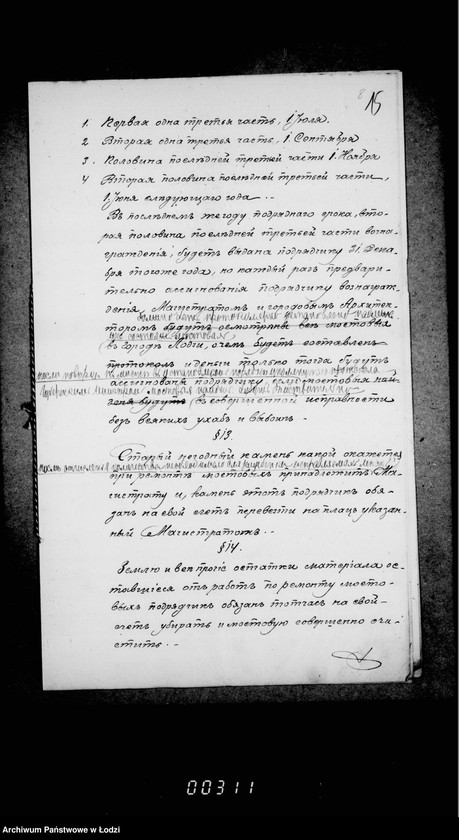 15
1. Первая одна третья часть, 1 Юля.
2 Вторая одна третья часть, 1. Сентября
3. Половина последней третей части 1. Ноября
4 Вторая половина последней третьей части,
1 Юня следующаго года
Въ последнем же году подряднаго срока, вто-
рая половина последней третьей части возна-
граждения, будетъ выдана подрядчику 31. Дека-
бря того же года, но каждый разъ предвари-
тельно ассигнования подрядчику вознаграж-
дения, Магистратомъ и городовымъ Архитек-
торомъ будутъ осмотрены все мостовыя
въ городе Лодзи, о чемъ будетъ составленъ
протоколъ и деньги только тогда будутъ
ассигнованы подрядчику, если мостовыя
будутъ въ совершенной исправности
безъ всякихъ ухабъ и выбоинъ.
§13.
Старый негодный камень какой окажется
при ремонте мостовыхъ принадлежитъ Ма-
гистрату и, камень этотъ подрядчик обя-
занъ на свой счетъ перевезти на плацъ указан-
ный Магистратомъ.
§14.
Землю и все прочие остатки материала ос-
тавшиеся отъ работъ по ремонту мосто-
выхъ подрядчик обязанъ тотчасъ на свой
счетъ убирать и мостовую совершенно очи-
стить.
00311
Archiwum Państwowe w Łodzi